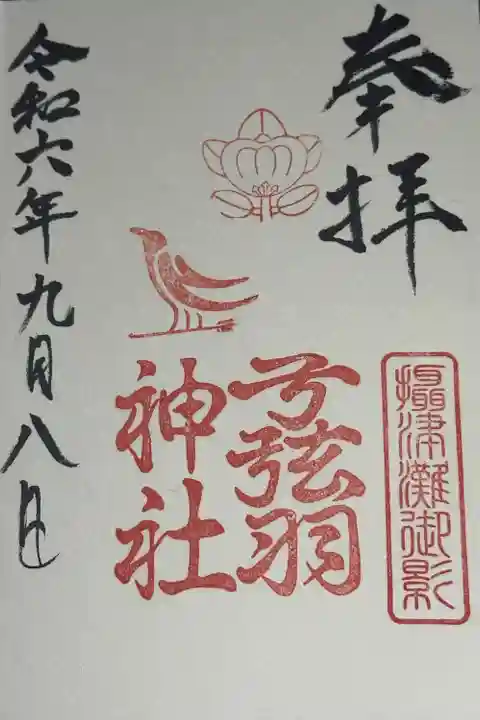 奉拝
摂津灘御影
弓弦羽
神社
令和六年九月八日